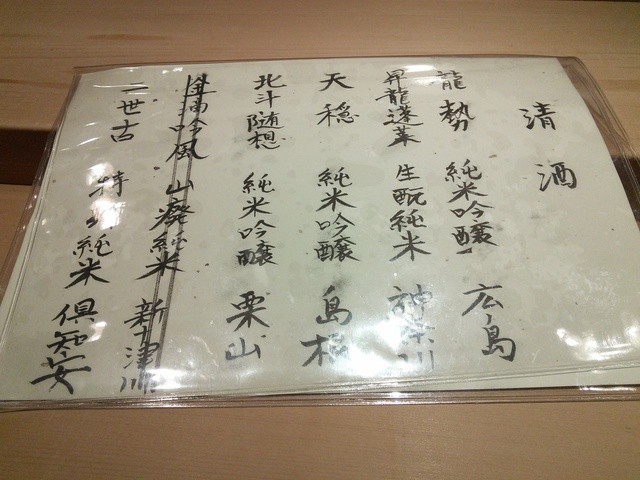 清酒
龍勢 純米吟醸 広島
昇龍蓬莱 生酛純米 神奈川
天穏 純米吟醸 島根
北斗随想 純米吟醸 栗山
吟風 山廃純米 新十津川
二世古 特 純米 倶知安